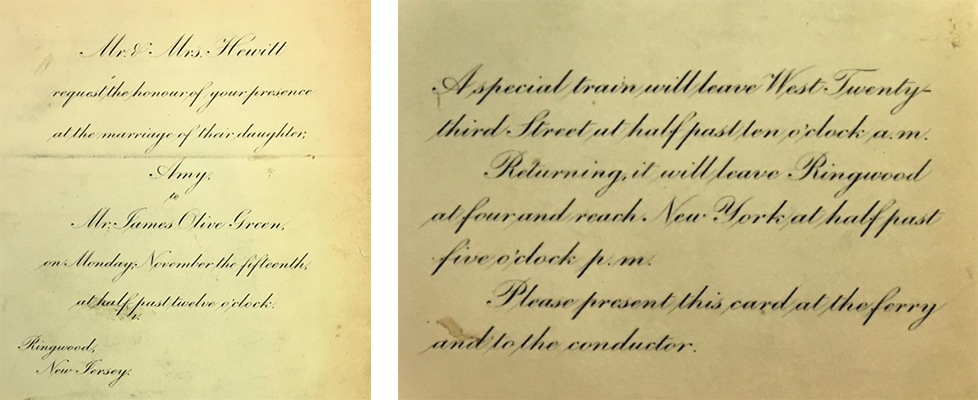 Mr. & Mrs. Hewitt
request the honour of your presence
at the marriage of their daughter,
Amy,
to
Mr. James Olive Green,
on Monday, November the fifteenth,
at half past twelve o'clock.
Ringwood,
New Jersey.
A special train will leave West Twenty-
third Street at half past ten o'clock a.m.
Returning, it will leave Ringwood
at four and reach New York at half past
five o'clock p.m.
Please present this card at the ferry
and to the conductor.